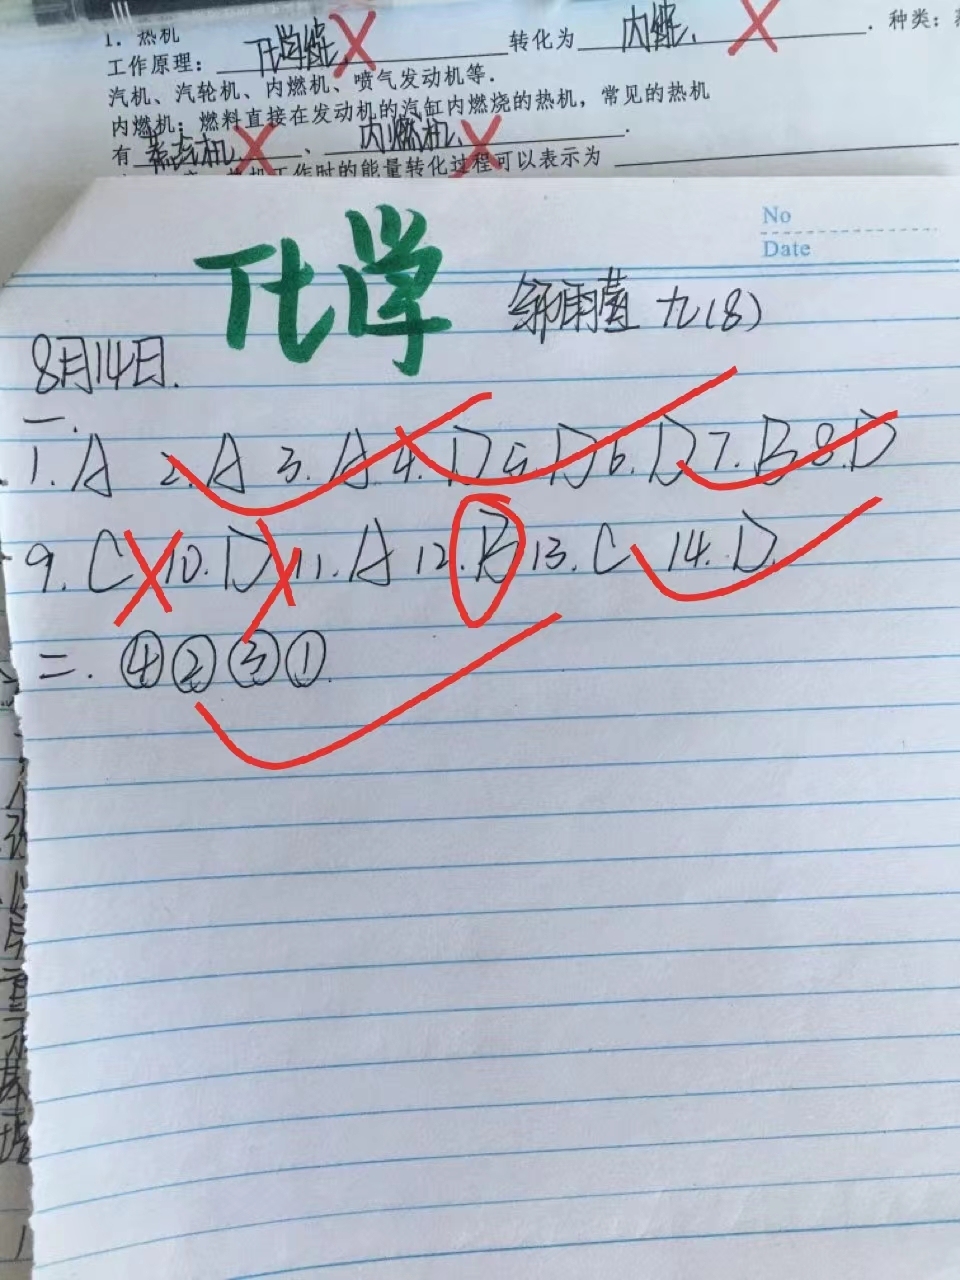 1. 热机
工作原理：化学能 转化为 内能 . 种类：
汽机、汽轮机、内燃机、喷气发动机等.
内燃机：燃料直接在发动机的汽缸内燃烧的热机，常见的热机
有 蒸汽机 、 内燃机 .
热机工作时的能量转化过程可以表示为
No
Date
化学
雨 九(8)
8月14日.
一.
1. A 2. A 3. A 4. D 5. D 6. D 7. B 8. D
9. C 10. D 11. A 12. B 13. C 14. D.
二. ④②③①.